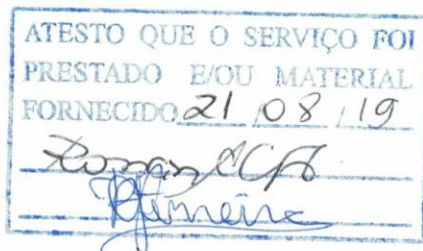 ATESTO QUE O SERVIÇO FOI
PRESTADO E/OU MATERIAL
FORNECIDO 21/08/19